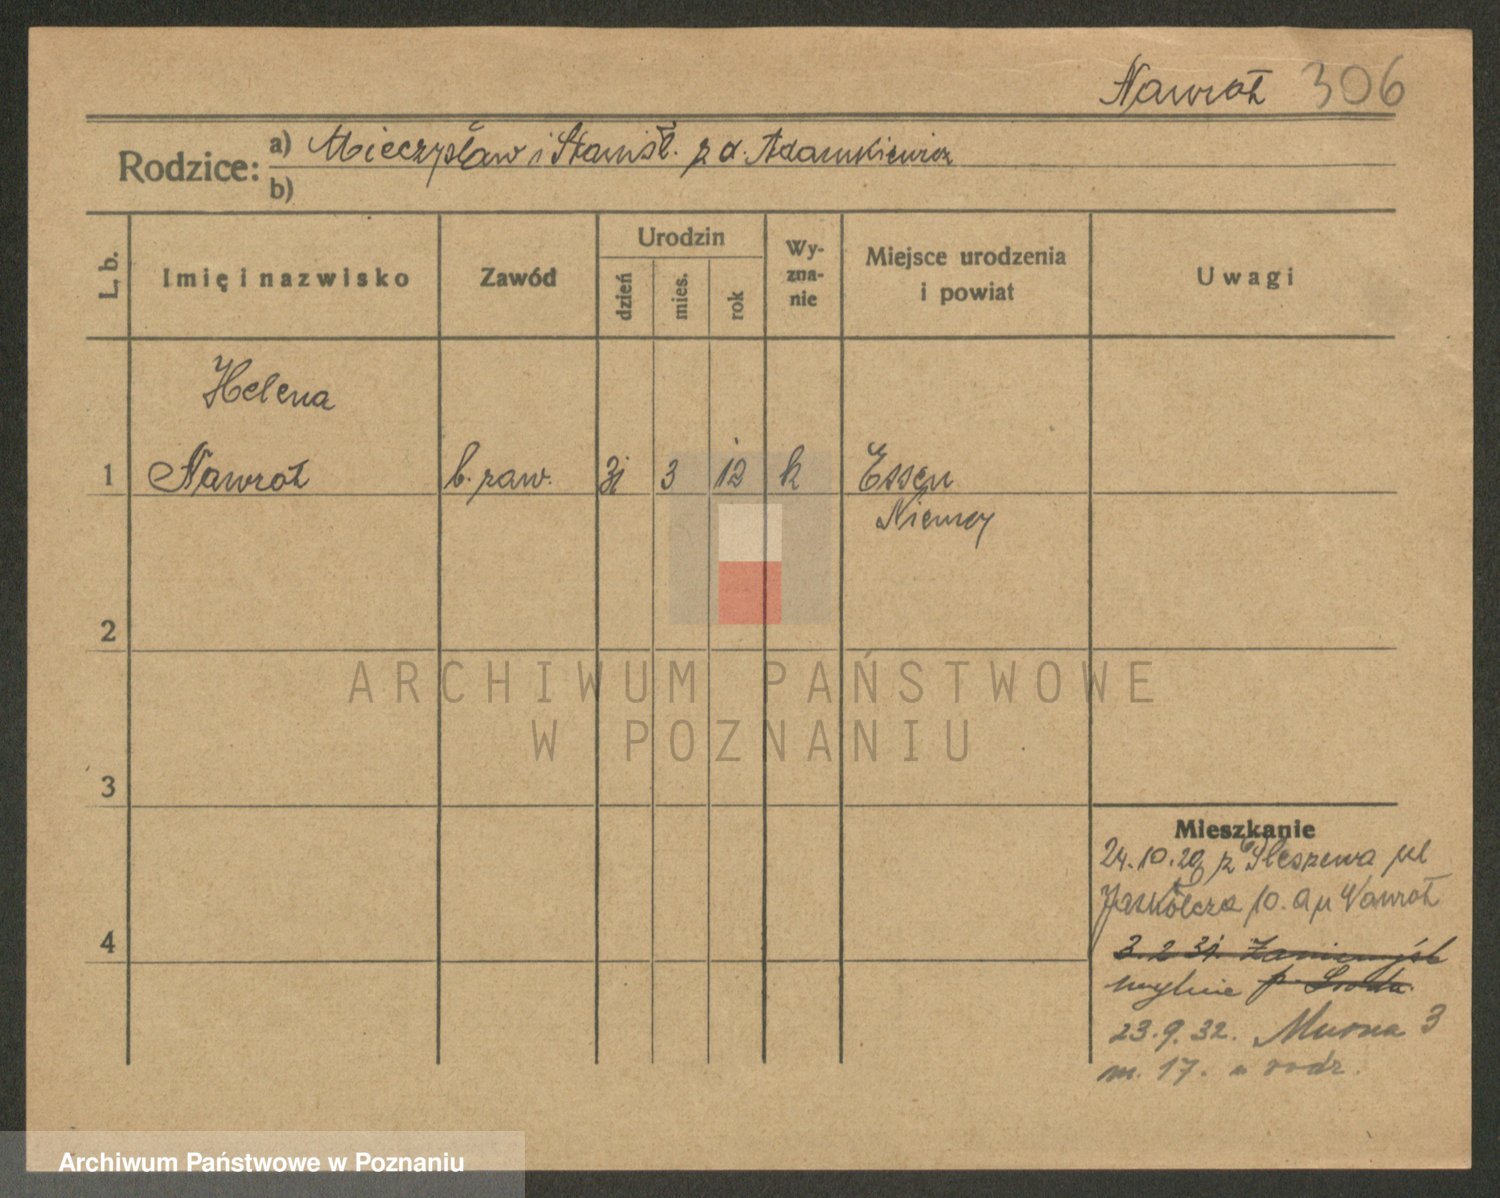 Nawrot 306
Rodzice: a) Mieczysław i Stanisł. z d. Adamkiewicz
b)
L. b. Imię i nazwisko Zawód Urodzin dzień mies. rok Wy-zna-nie Miejsce urodzenia i powiat Uwagi
Helena
1 Nawrot b. zaw. 31 3 12 k Essen
Niemcy
2
ARCHIWUM PAŃSTWOWE
W POZNANIU
3
Mieszkanie
24.10.29 z Pleszewa ul
Jaskółcza 10. Nawrot
4
3. 2 31. Zaniemyśl
mylnie p. Środa.
23.9.32. Murna 3
m. 17. rodz.
Archiwum Państwowe w Poznaniu